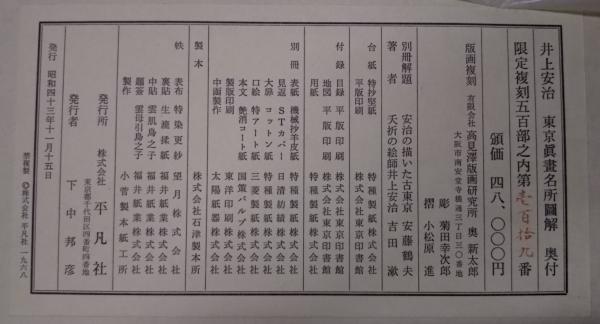 井上安治 東京眞畫名所圖解 奥付
限定複刻五百部之内第壱百拾九番
頒価 四八、〇〇〇円
版画複刻 有限会社 高見澤版画研究所 奥 新太郎
大阪市南安堂寺橋通三丁目三〇番地
彫 菊田幸次郎
摺 小松原 進
別冊解題 安治の描いた古東京 安藤鶴夫
著者 夭折の絵師井上安治 吉田 漱
台紙 特抄堅紙 特種製紙株式会社
付録 目録 平版印刷 株式会社東京印書館
地図 平版印刷 株式会社東京印書館
用紙 特種製紙株式会社
別冊 表紙 機械抄羊皮紙 特種製紙株式会社
見返 STカバー 日清紡績株式会社
大扉 コットン紙 特種製紙株式会社
口絵 特アート紙 三菱製紙株式会社
本文 艶消コート紙 国策パルプ株式会社
製版印刷 東洋印刷株式会社
中函製作 太陽紙器株式会社
製本 株式会社石津製本所
帙 表布 特染更紗 望月株式会社
裏貼 生漉揉紙 福井紙業株式会社
中貼 雲肌鳥之子 福井紙業株式会社
題簽 雲母引鳥之子 福井紙業株式会社
製作 小菅製本紙工所
発行所 株式会社 平凡社
東京都千代田区四番町四番地
発行者 下中邦彦
発行 昭和四十三年十一月十五日
禁複製 ©株式会社 平凡社 一九六八